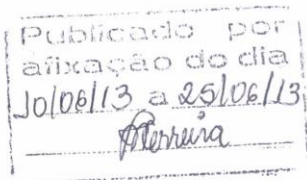 Publicado por
afixação do dia
10/06/13 a 25/06/13
AFerreira